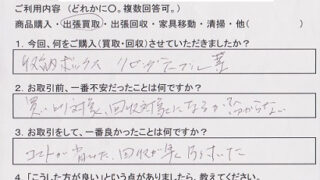 ご利用内容(どれかに○。複数回答可。)
商品購入・出張買取・出張回収・家具移動・清掃・他(
1. 今回、何をご購入(買取・回収)させていただきましたか?
収納ボックス リビングテーブル 等
2. お取引前、一番不安だったことは何ですか?
買い取り対象と回収対象になるか分からない
3. お取引をして、一番良かったことは何ですか?
コストが 回収が早く
4. 「こうした方が良い」という点がありましたら、教えてください。